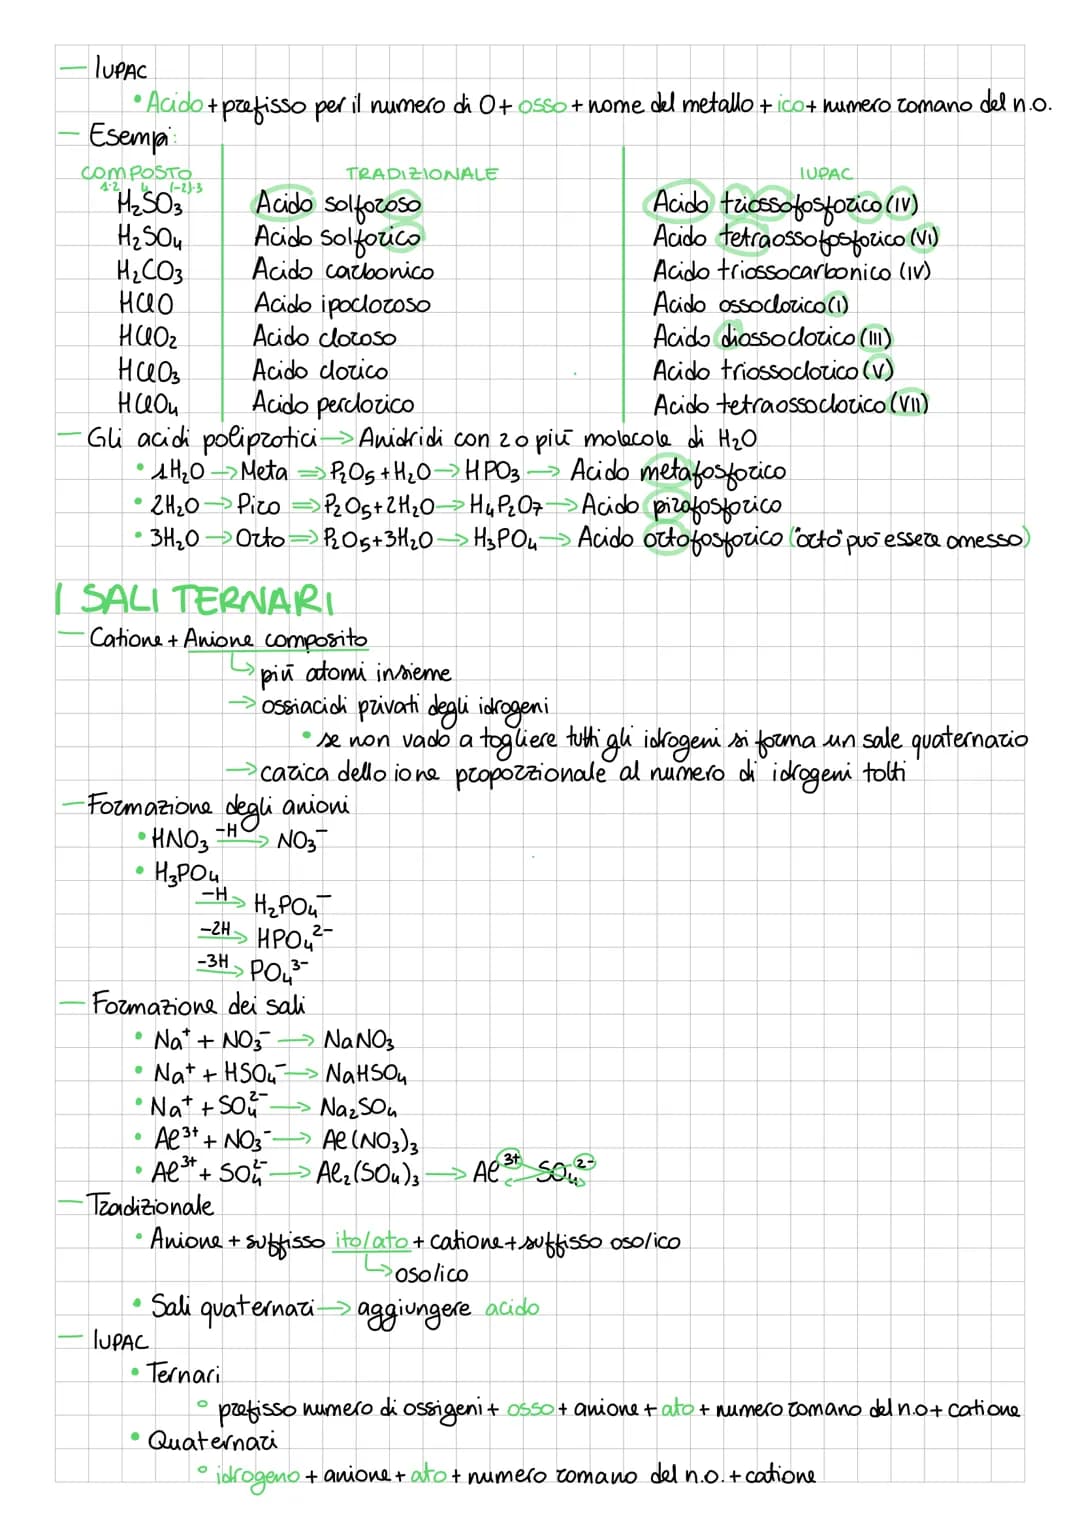 – IUPAC
• Acido + prefisso per il numero di O + osso + nome del metallo + ico + numero romano del n.o.
– Esempi:
COMPOSTO TRADIZIONALE IUPAC
1·2 4 (-2)·3
H₂SO₃ Acido solforoso Acido triossofosforico (IV)
H₂SO₄ Acido solforico Acido tetraossofosforico (VI)
H₂CO₃ Acido carbonico Acido triossocarbonico (IV)
HClO Acido ipocloroso Acido ossoclorico (I)
HClO₂ Acido cloroso Acido diossoclorico (III)
HClO₃ Acido clorico Acido triossoclorico (V)
HClO₄ Acido perclorico Acido tetraossoclorico (VII)
– Gli acidi poliprotici → Anidridi con 2 o più molecole di H₂O
• 1H₂O → Meta ⇒ P₂O₅ + H₂O → HPO₃ → Acido metafosforico
• 2H₂O → Piro ⇒ P₂O₅ + 2H₂O → H₄P₂O₇ → Acido pirofosforico
• 3H₂O → Orto ⇒ P₂O₅ + 3H₂O → H₃PO₄ → Acido ortofosforico ("orto" può essere omesso)
I SALI TERNARI
– Catione + Anione composito
↳ più atomi insieme
→ ossiacidi privati degli idrogeni
• se non vado a togliere tutti gli idrogeni si forma un sale quaternario
→ carica dello ione proporzionale al numero di idrogeni tolti
– Formazione degli anioni
• HNO₃ –H→ NO₃⁻
• H₃PO₄
–H→ H₂PO₄⁻
–2H→ HPO₄²⁻
–3H→ PO₄³⁻
– Formazione dei sali
• Na⁺ + NO₃⁻ → NaNO₃
• Na⁺ + HSO₄⁻ → NaHSO₄
• Na⁺ + SO₄²⁻ → Na₂SO₄
• Al³⁺ + NO₃⁻ → Al(NO₃)₃
• Al³⁺ + SO₄²⁻ → Al₂(SO₄)₃ → Al³⁺ SO₄²⁻
– Tradizionale
• Anione + suffisso ito/ato + catione + suffisso oso/ico
↳ oso/ico
• Sali quaternari → aggiungere acido
– IUPAC
• Ternari
° prefisso numero di ossigeni + osso + anione + ato + numero romano del n.o + catione
• Quaternari
° idrogeno + anione + ato + numero romano del n.o. + catione